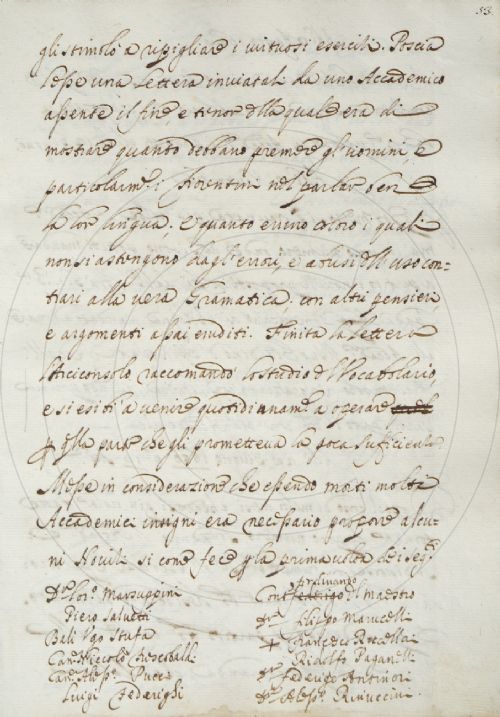 53.
gli stimolò a ripigliare i virtuosi esercizi. Poscia
lesse una Lettera inviatali da uno Accademico
assente il fine e tenor della quale era di
mostrare quanto debbano premere gl'uomini, e
particolarme. i Fiorentini nel parlar bene
la lor lingua. E quanto errino coloro i quali
non si astengono dagl'errori, e abusi dell'uso con=
trari alla vera Gramatica. con altri pensieri,
e argomenti assai eruditi. Finita la Lettera
l'Arciconsolo raccomandò lo studio del Vocabolario,
e si esibì a venire quotidianam. a operare
per la parte che gli prometteva la poca sufficienza.
Messe in considerazione che essendo morti molti
Accademici insigni era necessario proporre alcu-
ni Novizi si come fece per la prima volta dei seg.ti
D.r Lor.o Marsuppini
Piero Salvetti
Bali Ugo Stufa
Can.o Niccolò Frescobaldi
Can.o Aless.o Pucci
Luigi Federighi
Ferdinando
Cont. del Maestro
Filippo Marucelli
Francesco Rucellai
Ridolfo Paganelli
Federigo Antinori
Aless.o Rinuccini